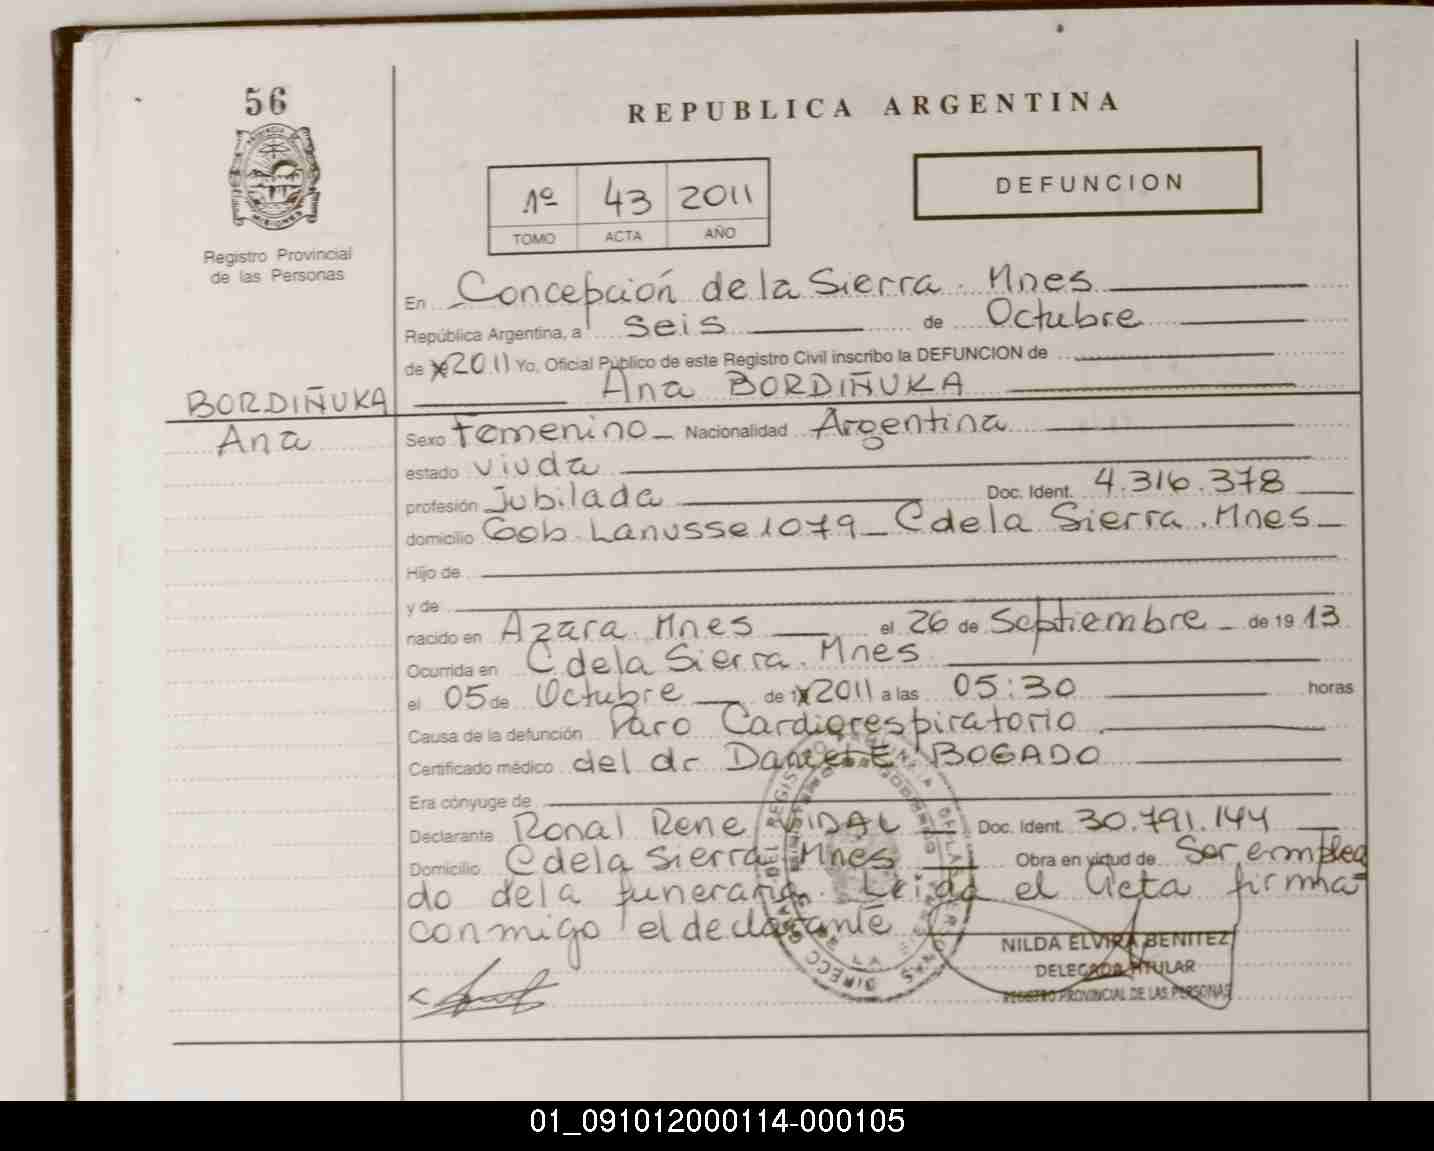 56
REPUBLICA ARGENTINA
1º 43 2011
TOMO ACTA AÑO
DEFUNCION
Registro Provincial
de las Personas
En Concepción de la Sierra. Mnes
República Argentina, a seis de Octubre
de 2011 Yo, Oficial Público de este Registro Civil inscribo la DEFUNCION de
Ana BORDIÑUKA
BORDIÑUKA
Ana
Sexo Femenino Nacionalidad Argentina
estado viuda
profesión Jubilada Doc. Ident. 4.316.378
domicilio Gob. Lanusse 1079 - C de la Sierra. Mnes
Hijo de
y de
nacido en Azara. Mnes el 26 de Septiembre de 19 13
Ocurrida en C. de la Sierra. Mnes
el 05 de Octubre de 2011 a las 05:30 horas
Causa de la defunción Paro Cardiorespiratorio
Certificado médico del dr BOGADO
Era cónyuge de
Declarante Ronal Rene VIDAL Doc. Ident. 30.791.144
Domicilio C de la Sierra Mnes Obra en virtud de Ser emplea
do de la funeraria. Leida el Acta firma
conmigo el declarante
NILDA ELVIRA BENITEZ
DELEGADA TITULAR
REGISTRO PROVINCIAL DE LAS PERSONAS
01_091012000114-000105